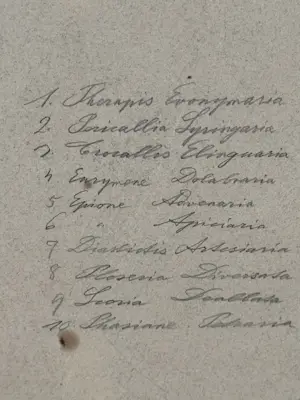 1. Therapis Evonymaria
2. Pericallia Syringaria
3. Crocallis Elinguaria
4 Eurymene Dolabraria
5 Epione Advenaria
6 " Apiciaria
7 Diastictis Artesiaria
8 Ploseria Diversata
9 Scoria Dealbata
10 Phasiane Petraria